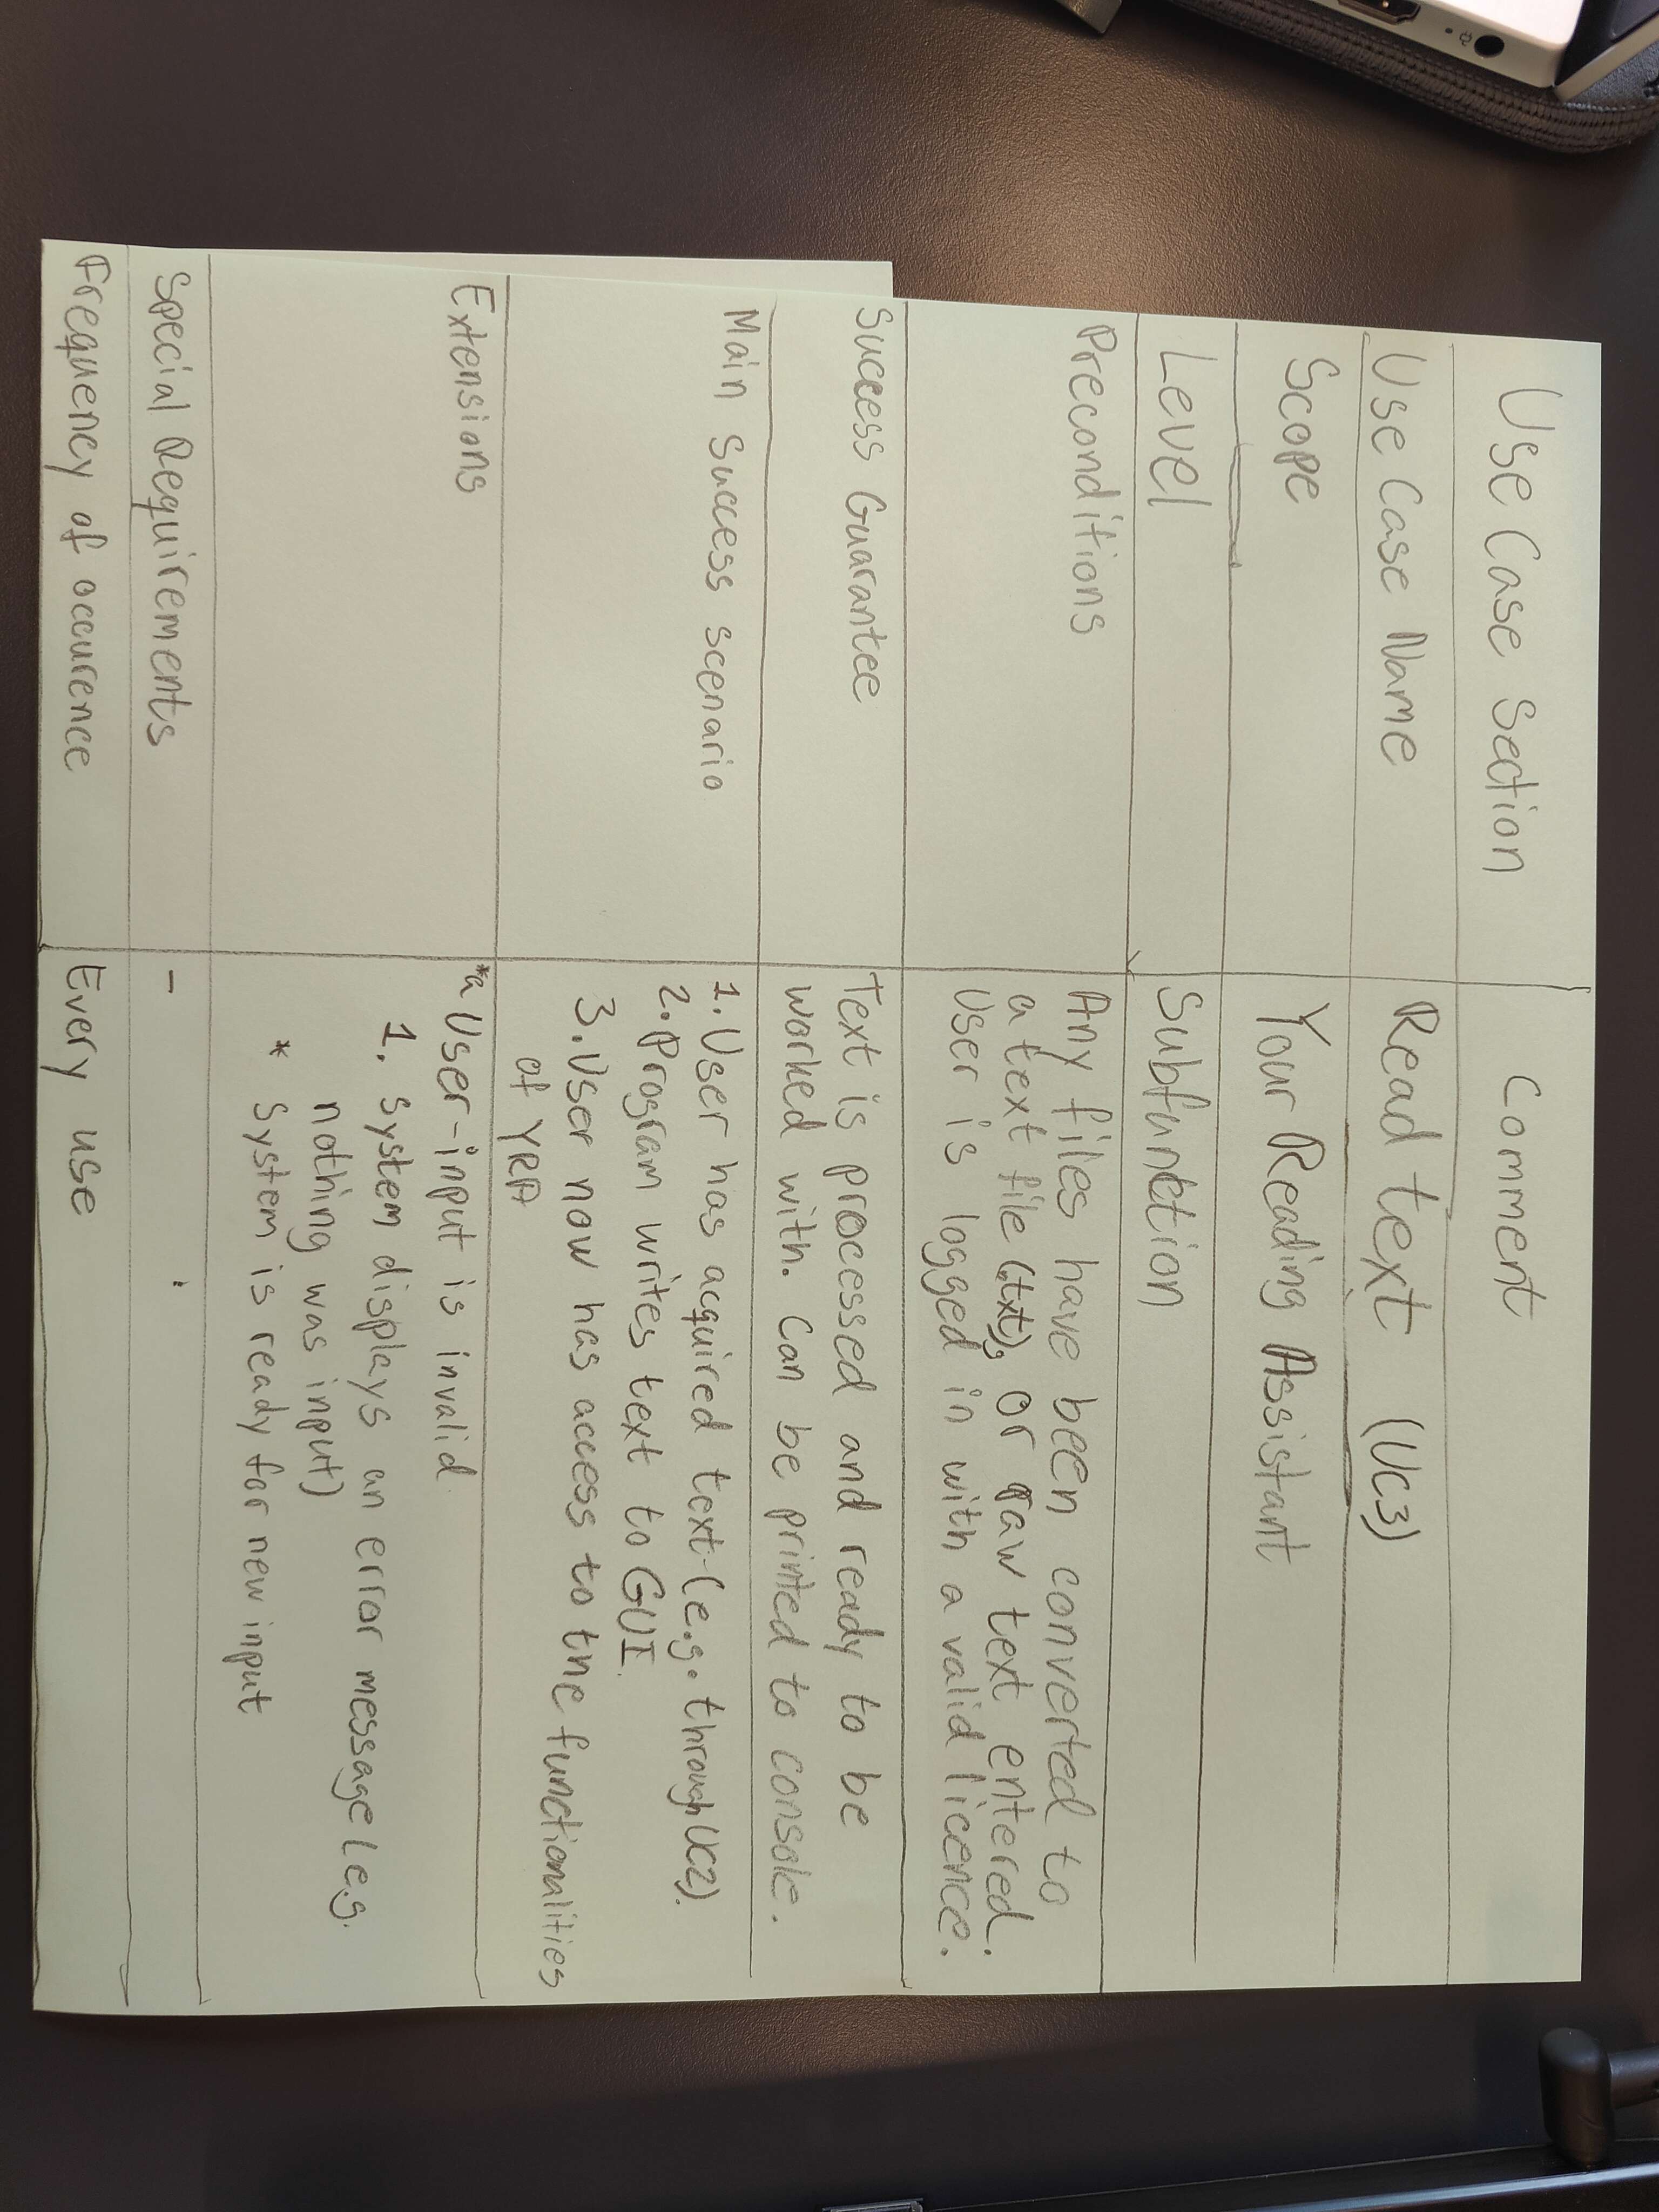 Use Case Section Comment
Use Case Name Read text (UC3)
Scope Your Reading Assistant
Level Subfunction
Preconditions Any files have been converted to
a text file (.txt), or raw text entered.
User is logged in with a valid licence.
Success Guarantee Text is processed and ready to be
worked with. Can be printed to console.
Main Success scenario 1. User has acquired text (e.g. through UC2).
2. Program writes text to GUI.
3. User now has access to the functionalities
of YRA
Extensions *a User-input is invalid
1. System displays an error message (e.g.
nothing was input)
* System is ready for new input
Special Requirements –
Frequency of occurence Every use